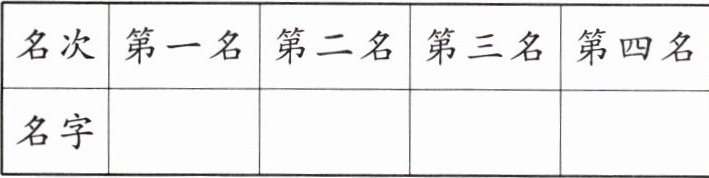 名次 第一名 第二名 第三名 第四名
名字